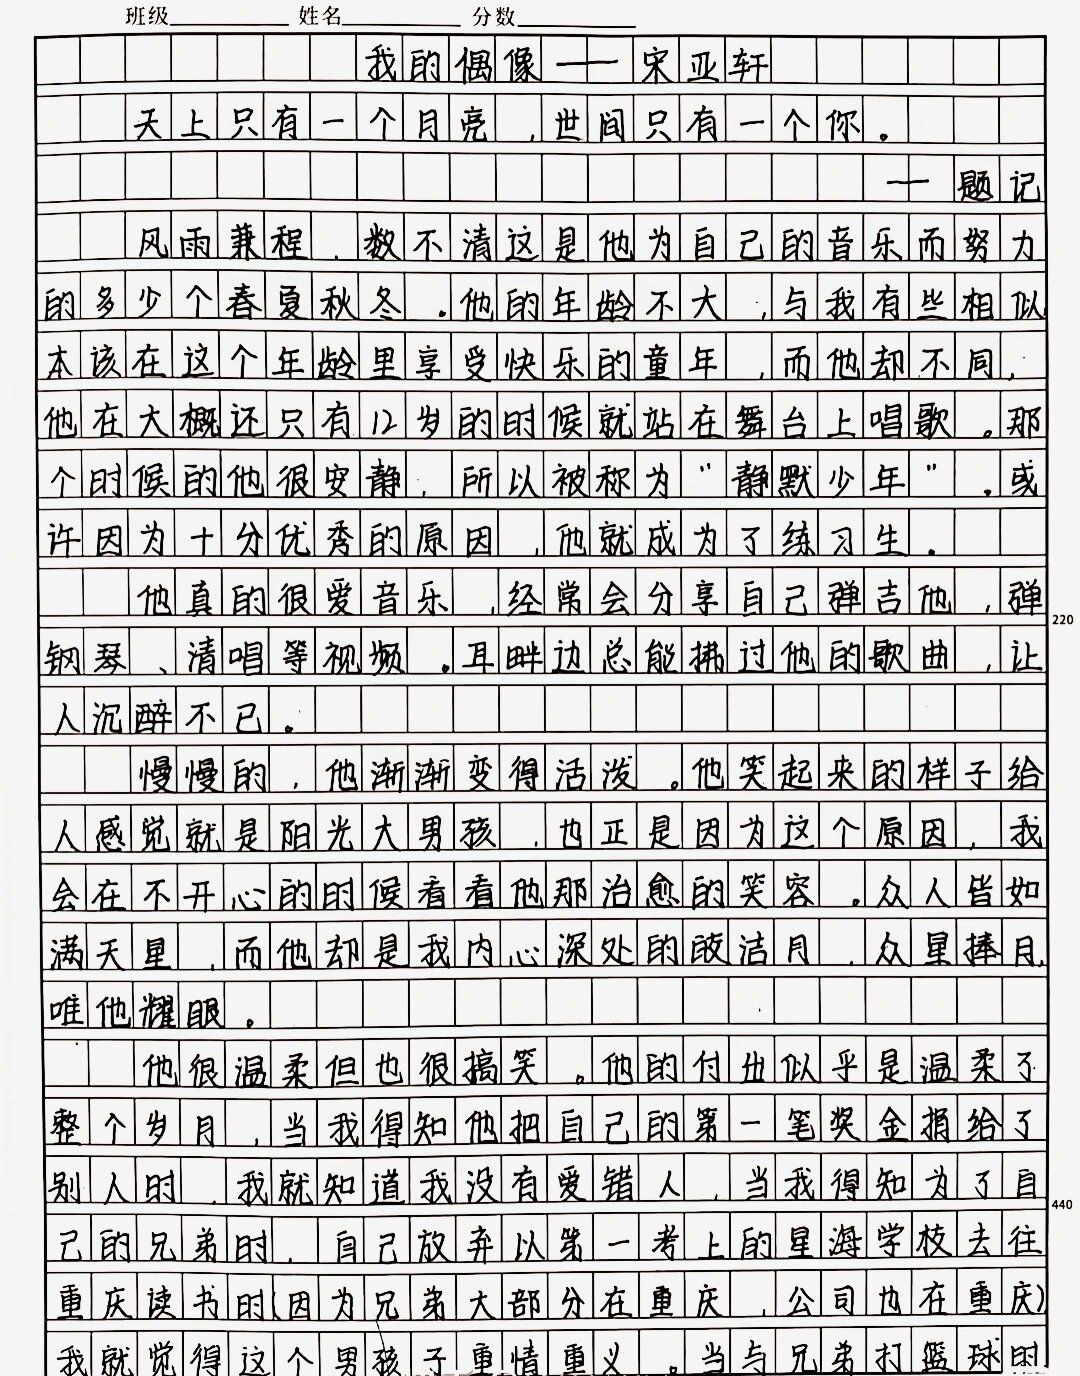 班级 姓名 分数
我的偶像——宋亚轩
天上只有一个月亮,世间只有一个你。
—题记
风雨兼程,数不清这是他为自己的音乐而努力
的多少个春夏秋冬。他的年龄不大,与我有些相似
本该在这个年龄里享受快乐的童年,而他却不同,
他在大概还只有12岁的时候就站在舞台上唱歌。那
个时候的他很安静,所以被称为"静默少年"。或
许因为十分优秀的原因,他就成为了练习生。
他真的很爱音乐,经常会分享自己弹吉他,弹
220
钢琴、清唱等视频。耳畔边总能拂过他的歌曲,让
人沉醉不已。
慢慢的,他渐渐变得活泼。他笑起来的样子给
人感觉就是阳光大男孩,也正是因为这个原因,我
会在不开心的时候看看他那治愈的笑容。众人皆如
满天星,而他却是我内心深处的皎洁月,众星捧月,
唯他耀眼。
他很温柔但也很搞笑。他的付出似乎是温柔了
整个岁月,当我得知他把自己的第一笔奖金捐给了
别人时,我就知道我没有爱错人,当我得知为了自
440
己的兄弟时,自己放弃以第一考上的星海学校去往
重庆读书时(因为兄弟大部分在重庆,公司也在重庆)
我就觉得这个男孩子重情重义。当与兄弟打篮球时